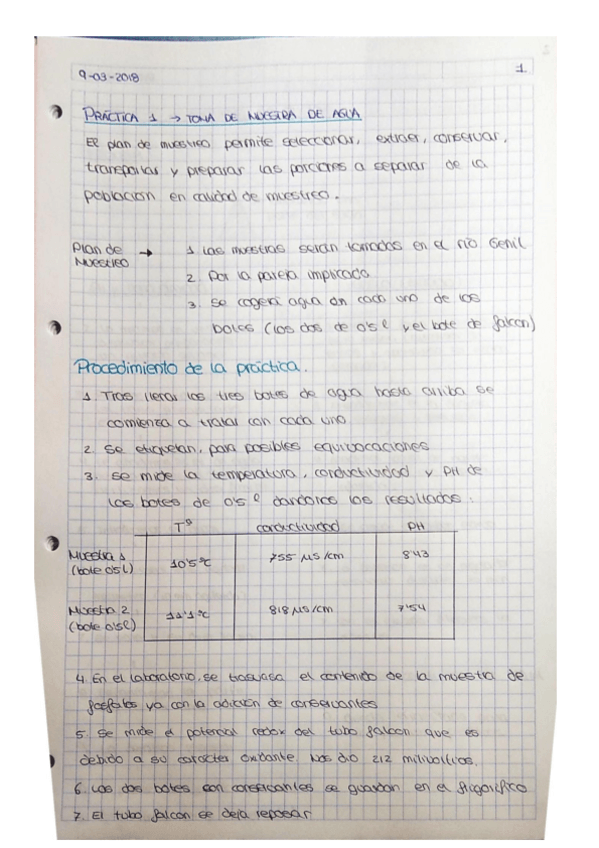 9-03-2018
1.
PRÁCTICA 1 → TOMA DE MUESTRA DE AGUA
El plan de muestreo permite seleccionar, extraer, conservar,
transportar y preparar las porciones a separar de la
población en calidad de muestreo.
Plan de Muestreo →
1 Las muestras serán tomadas en el río Genil
2. Por la pareja implicada
3. Se cogerá agua en cada uno de los
botes (los dos de 0'5 l y el bote de falcon)
Procedimiento de la práctica.
1. Tras llenar los tres botes de agua hasta arriba se
comienza a tratar con cada uno
2. Se etiquetan, para posibles equivocaciones
3. Se mide la temperatura, conductividad y pH de
los botes de 0'5 l dándonos los resultados:
Tª conductividad PH
Muestra 1 (bote 0'5 l) 10'5 ºC 755 µS/cm 8'43
Muestra 2 (bote 0'5 l) 11'1 ºC 818 µS/cm 7'54
4. En el laboratorio, se trasvasa el contenido de la muestra de
fosfatos ya con la adición de conservantes
5. Se mide el potencial redox del tubo falcon que es
debido a su carácter oxidante. Nos dio 212 milivoltios.
6. Los dos botes con conservantes se guardan en el frigorífico
7. El tubo falcon se deja reposar